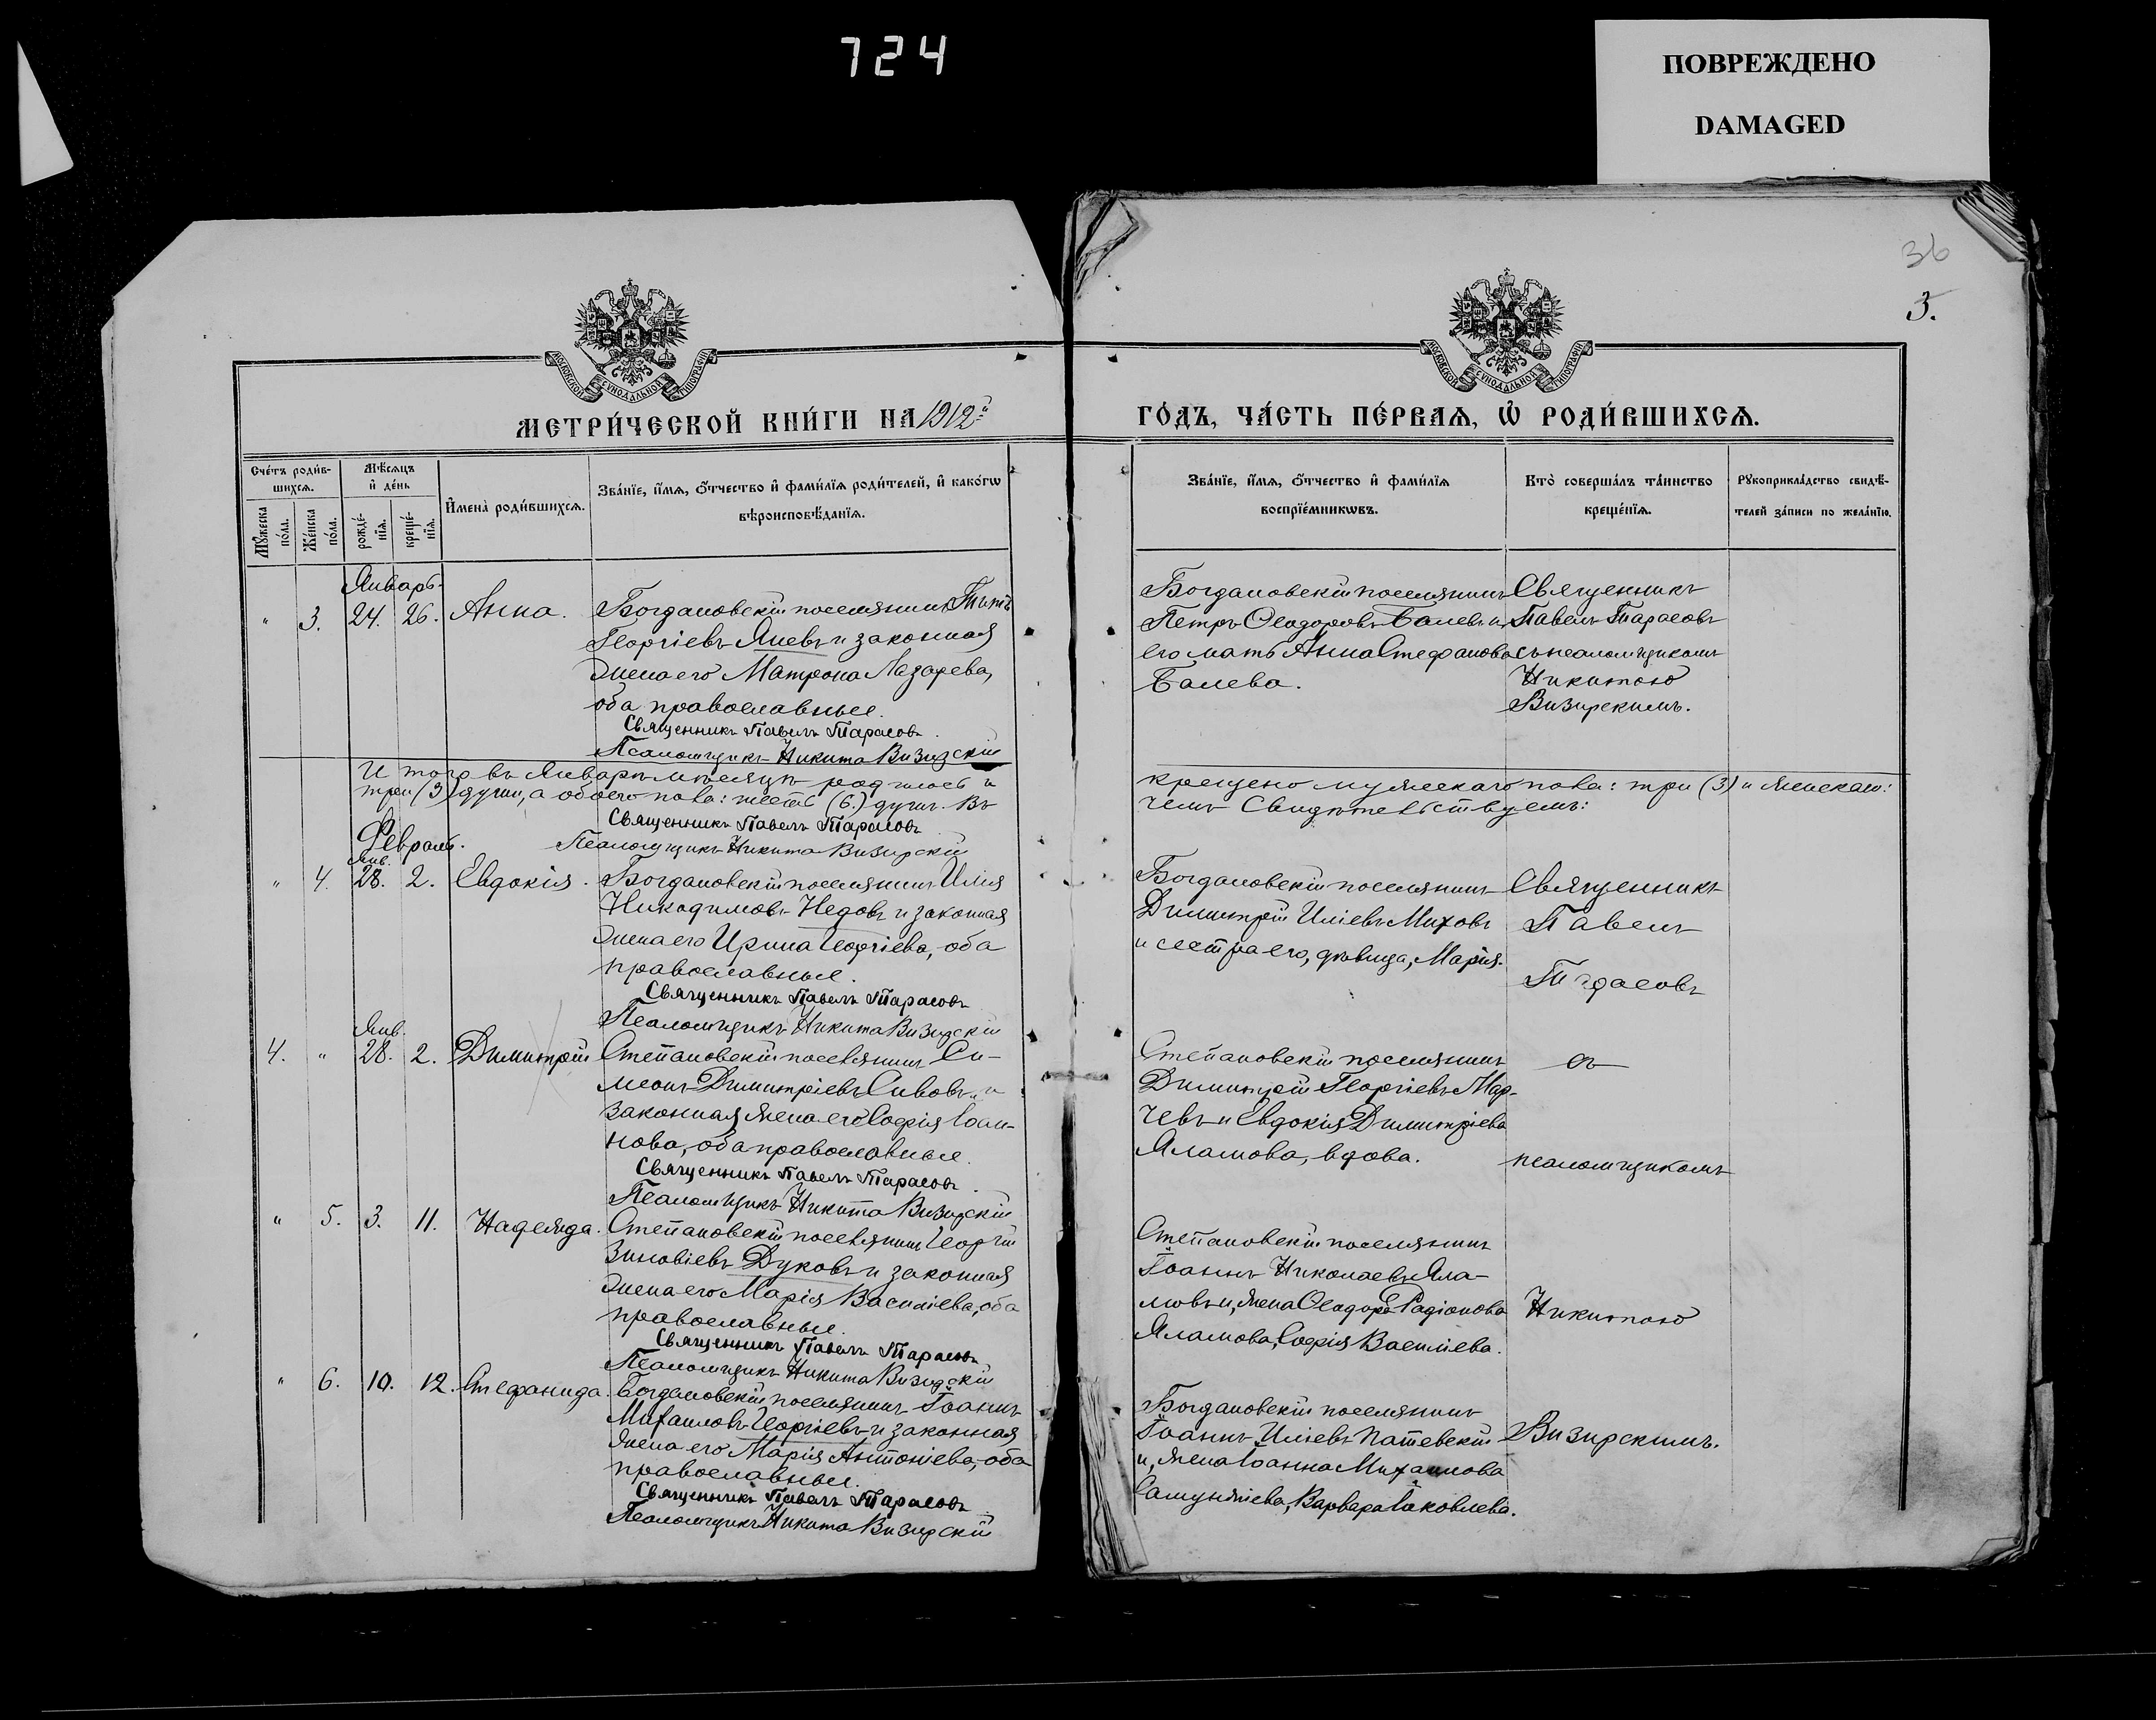 724
ПОВРЕЖДЕНО
DAMAGED
36
3.
МОСКОВСКОЙ СѴНОДАЛЬНОЙ ТИПОГРАФІИ
МОСКОВСКОЙ СѴНОДАЛЬНОЙ ТИПОГРАФІИ
МЕТРИ́ЧЕСКОЙ КНИ́ГИ НА 1912й
ГО́ДЪ, ЧА́СТЬ ПЕ́РВАѦ, Ѡ҆ РОДИ́ВШИХСѦ.
Сче́тъ роди́в-
шихсѧ.
Мѣ́сѧцъ
и҆ де́нь
Мꙋ́жеска
по́ла.
Же́нска
по́ла.
рожде́-
нїѧ.
креще́-
нїѧ.
И҆мена̀ роди́вшихсѧ.
Зва́нїе, и҆́мѧ, ѻ҆́тчество и҆ фами́лїѧ роди́телей, и҆ како́гѡ
вѣроисповѣ́данїѧ.
Зва́нїе, и҆́мѧ, ѻ҆́тчество и҆ фами́лїѧ
воспрїе́мникѡвъ.
Кто̀ соверша́лъ та́инство
креще́нїѧ.
Рꙋкоприкла́дство свидѣ́-
телей за́писи по жела́нїю.
Январь.
" 3. 24. 26. Анна. Богдановскій поселянинъ Титъ
Георгіевъ Яневъ и законная
жена его Матрона Лазарева,
оба православные.
Священникъ Павелъ Тарасовъ.
Псаломщикъ Никита Визирскій
Богдановскій поселянинъ
Петръ Ѳеодоровъ Балевъ и
его мать Анна Стефанова
Балева.
Священникъ
Павелъ Тарасовъ
съ псаломщикомъ
Никитою
Визирскимъ.
Итого въ Январѣ мѣсяцѣ родилось и
крещено мужескаго пола: три (3) и женскаго:
три (3) души, а обоего пола: шесть (6.) душъ. Въ
чемъ Свидѣтельствуемъ:
Священникъ Павелъ Тарасовъ
Псаломщикъ Никита Визирскій
Февраль.
Янв.
" 4. 28. 2. Евдокія. Богдановскій поселянинъ Илія
Никодимовъ Недовъ и законная
жена его Ирина Георгіева, оба
православные.
Священникъ Павелъ Тарасовъ
Псаломщикъ Никита Визирскій
Богдановскій поселянинъ
Димитрій Иліевъ Миховъ
и сестра его, дѣвица, Марія.
Священникъ
Павелъ
Тарасовъ
Янв.
4. " 28. 2. Димитрій Степановскій поселянинъ Си-
меонъ Димитріевъ Сивовъ и
законная жена его Софія Іоан-
нова, оба православные.
Священникъ Павелъ Тарасовъ.
Псаломщикъ Никита Визирскій
Степановскій поселянинъ
Димитрій Георгіевъ Мар-
чевъ и Евдокія Димитріева
Яламова, вдова.
съ
псаломщикомъ
" 5. 3. 11. Надежда. Степановскій поселянинъ Георгій
Зиновіевъ Дуковъ и законная
жена его Марія Василіева, оба
православные.
Священникъ Павелъ Тарасовъ
Псаломщикъ Никита Визирскій
Степановскій поселянинъ
Іоаннъ Николаевъ Яла-
мовъ и, жена Ѳеодора Радіонова
Яламова, Софія Василіева.
Никитою
" 6. 10. 12. Стефанида. Богдановскій поселянинъ Іоаннъ
Михаиловъ Георгіевъ и законная
жена его Марія Антоніева, оба
православные.
Священникъ Павелъ Тарасовъ
Псаломщикъ Никита Визирскій
Богдановскій поселянинъ
Іоаннъ Иліевъ Патевскій
и, жена Іоанна Михаилова
Варвара Іаковлева.
Визирскимъ.